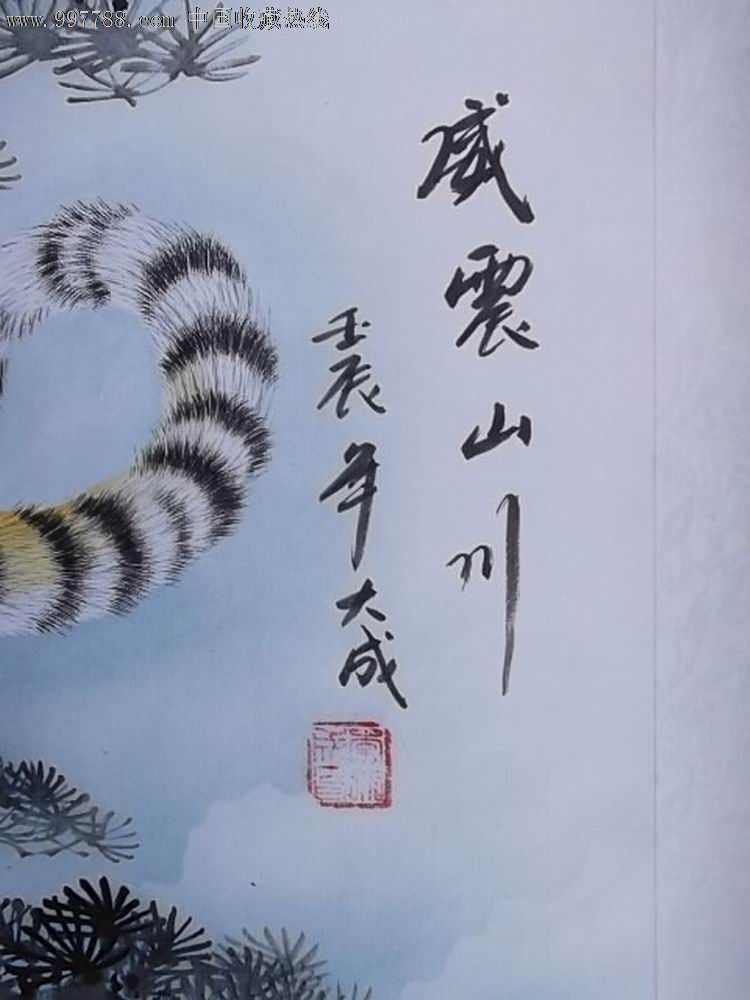 www.997788.com 中国收藏热线
威震山川
壬辰年大成